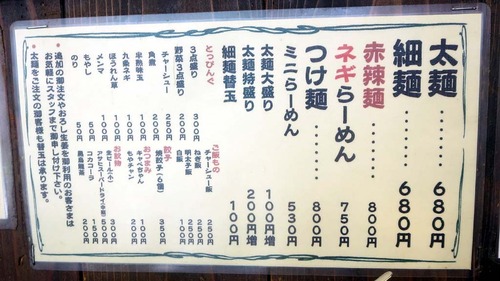 太麺 680円
細麺 680円
赤辣麺 800円
ネギらーめん 750円
つけ麺 800円
ミニらーめん 530円
太麺大盛り 100円増
太麺特盛り 200円増
細麺替玉 100円
とっぴんぐ
3点盛り 300円
野菜3点盛り 200円
チャーシュー 200円
角煮 200円
半熟味玉 100円
九条ネギ 100円
ほうれん草 100円
メンマ 100円
もやし 50円
のり 50円
ご飯もの
チャーシュー飯 250円
ねぎ飯 250円
明太子飯 250円
白飯 100円
餃子
焼餃子(6個) 350円
おつまみ
キャベちゃん 100円
もやチャン 200円
お飲物
生ビール(中) 300円
アサヒスーパードライ(中瓶) 500円
コカコーラ 150円
烏龍茶 200円
*追加の御注文やおろし生姜を御利用のお客さまは
お気軽にスタッフまで御申し付け下さい。
*太麺をご注文の御客様も替玉は承ります。